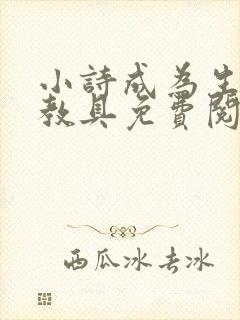 小詩成為生
教具免費閱
西瓜冰去冰